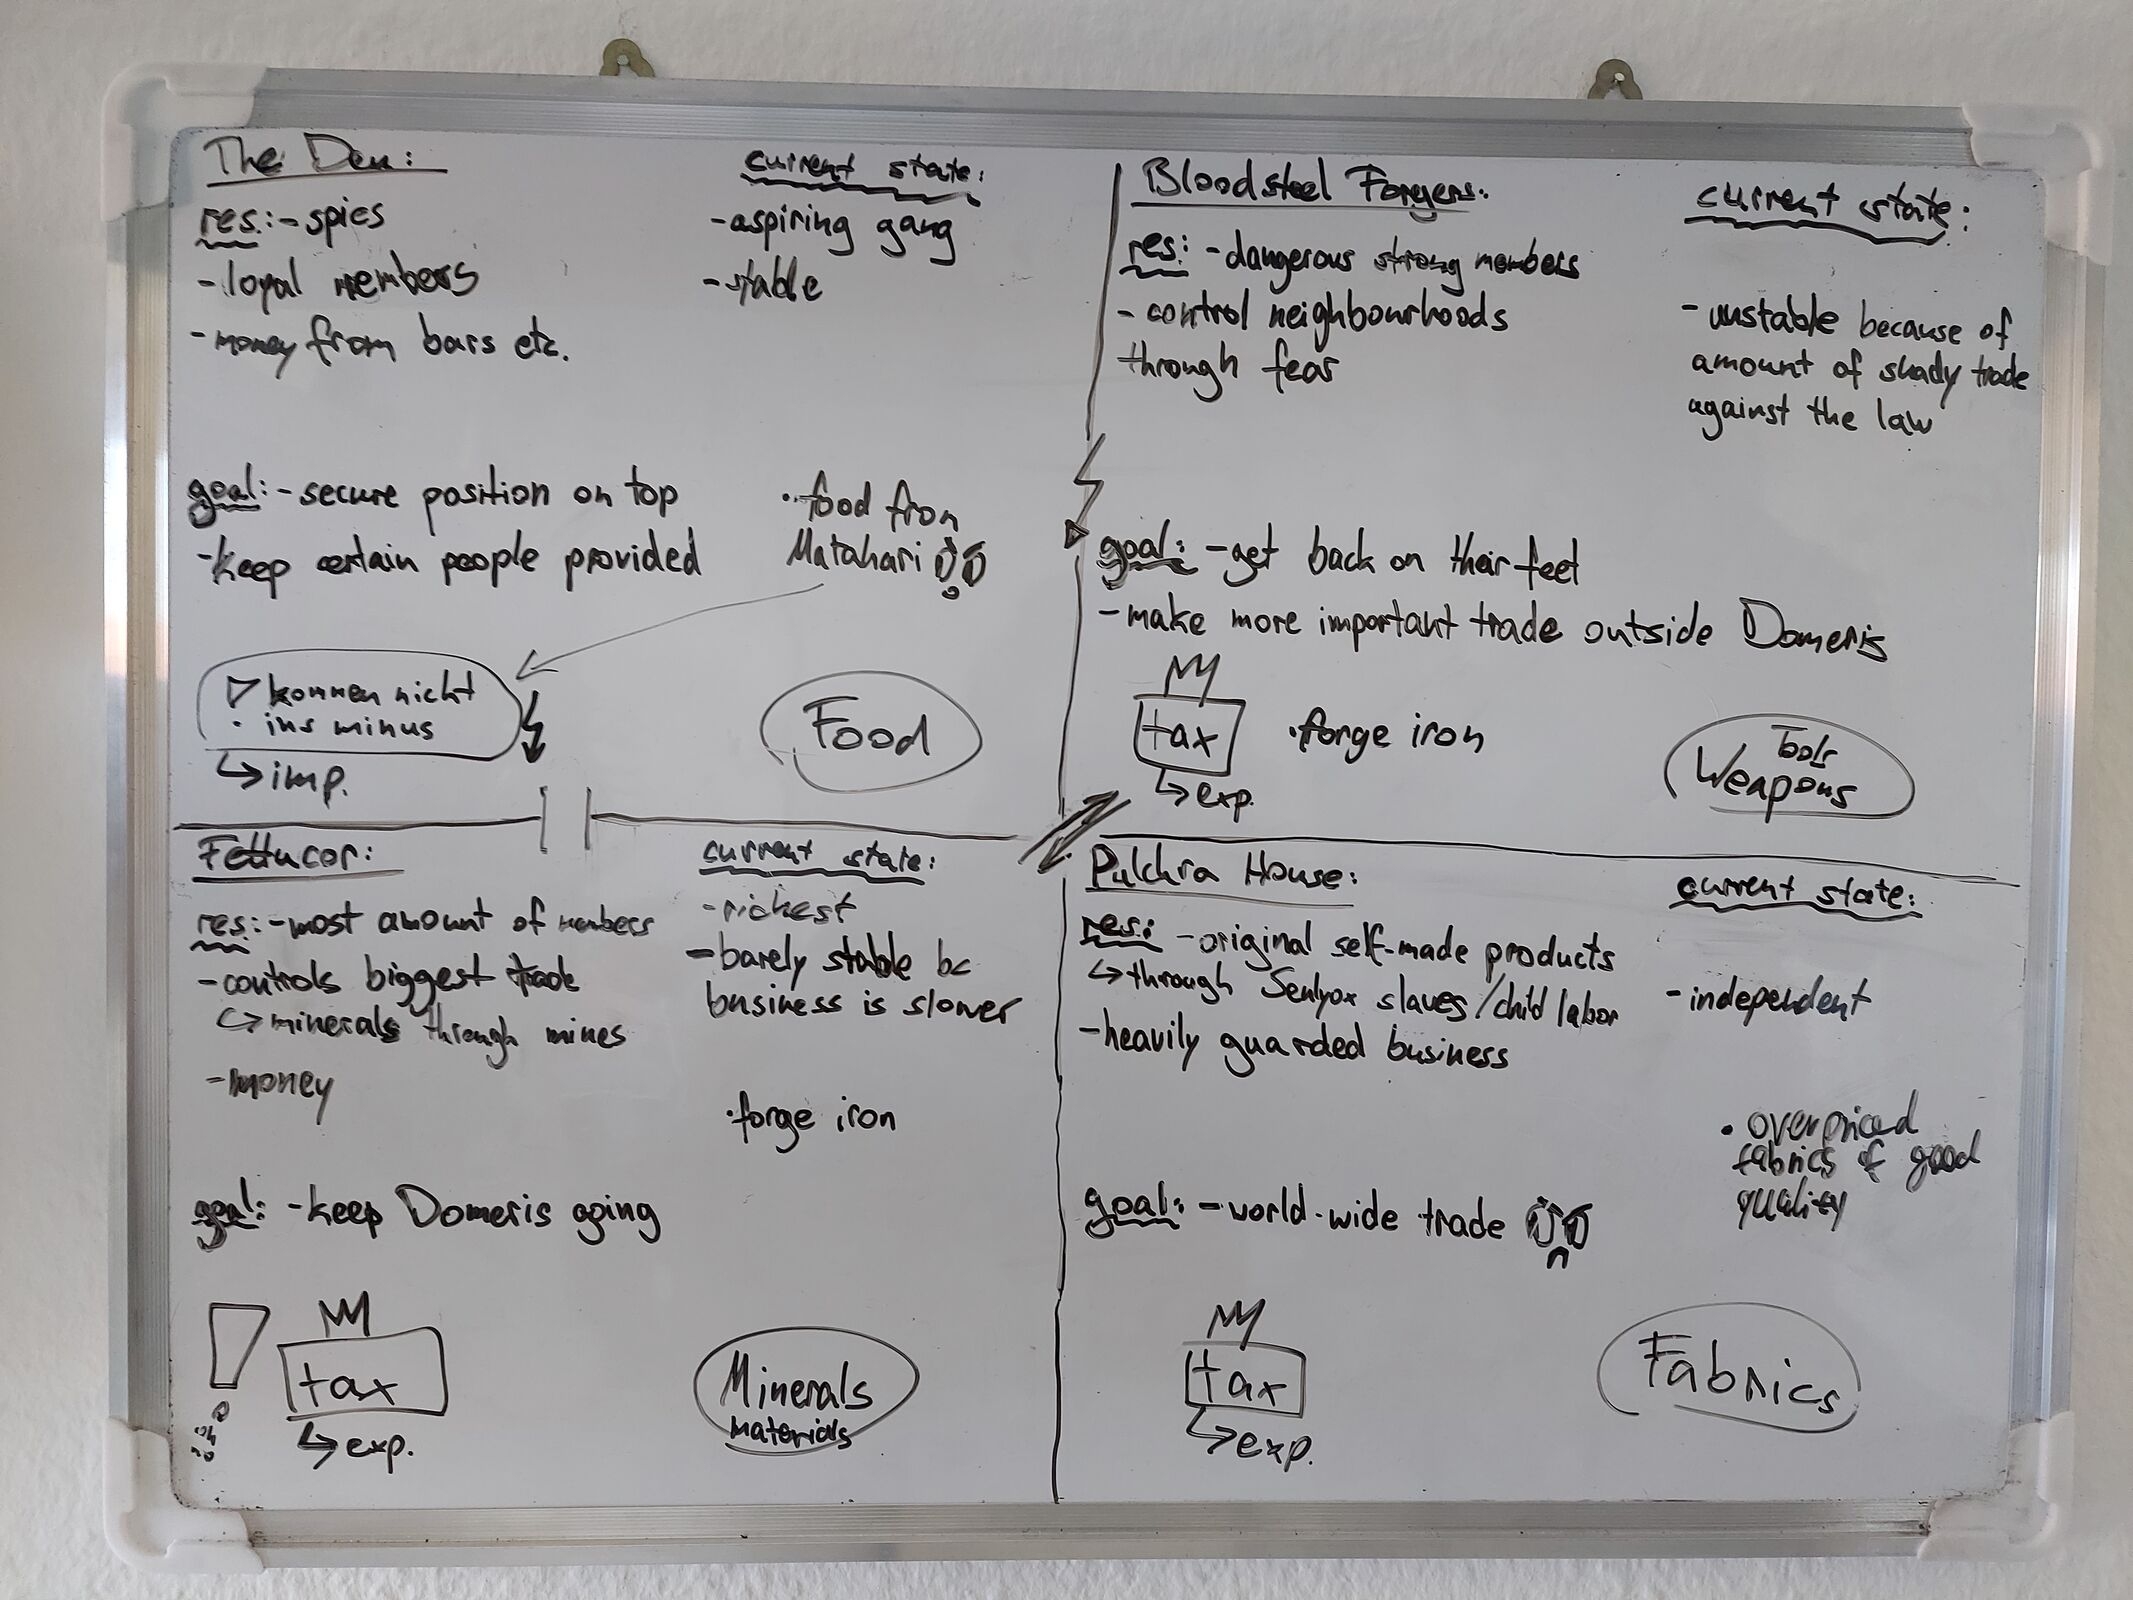 The Den:
current state:
res.: - spies
- loyal members
- money from bars etc.
- aspiring gang
- stable
goal: - secure position on top
- keep certain people provided
• food from
Matahari
kommen nicht
• ins minus
↳ imp.
Food
Bloodsteel Forgers:
current state:
res: - dangerous strong members
- control neighbourhoods
through fear
- unstable because of
amount of shady trade
against the law
goal: - get back on their feet
- make more important trade outside Domeris
tax
↳ exp.
• forge iron
Tools
Weapons
Fettucor:
current state:
res: - most amount of members
- controls biggest trade
↳ minerals through mines
- money
- richest
- barely stable bc
business is slower
• forge iron
goal: - keep Domeris going
tax
↳ exp.
Minerals
materials
Pulchra House:
current state:
res.: - original self-made products
↳ through slaves/child labor
- heavily guarded business
- independent
• overpriced
fabrics of good
quality
goal: - world-wide trade
tax
↳ exp.
Fabrics